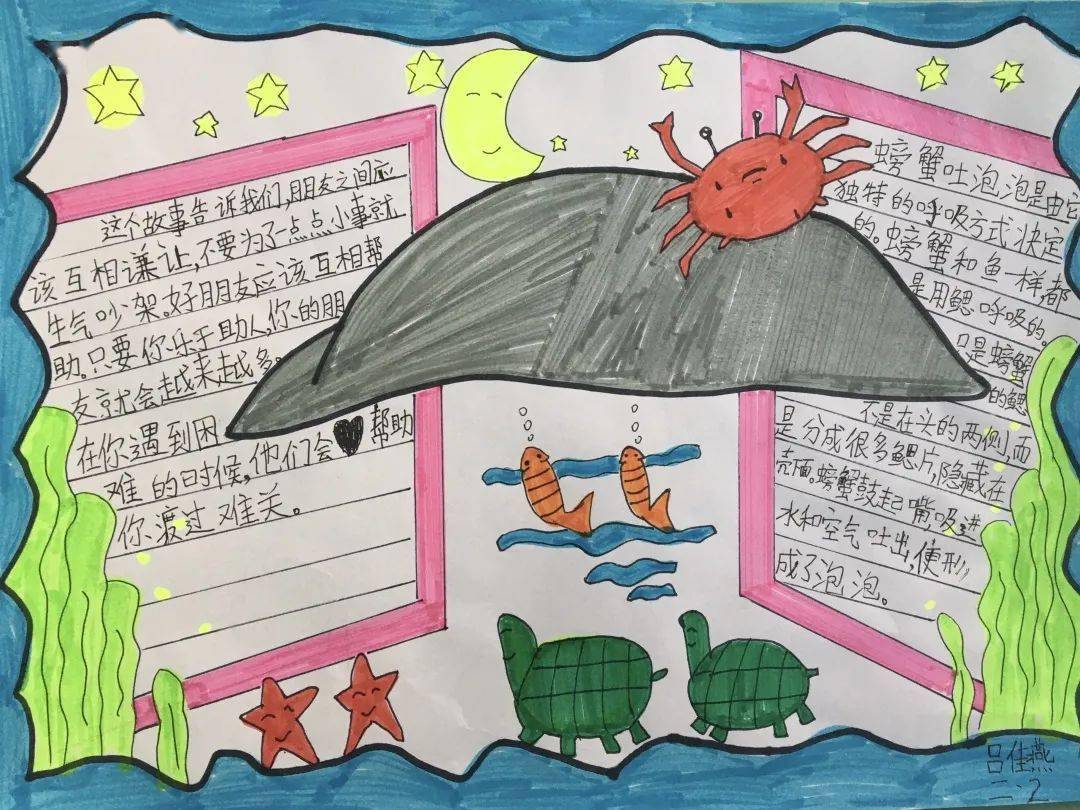 这个故事告诉我们,朋友之间应
该互相谦让,不要为了一点点小事就
生气吵架。好朋友应该互相帮
助,只要你乐于助人,你的朋
友就会越来越多。
在你遇到困 帮助
难的时候,他们会
你渡过难关。
螃蟹吐泡泡是由它
独特的呼吸方式决定
的。螃蟹和鱼一样,都
是用鳃呼吸的。
只是螃蟹
的鳃
不是在头的两侧,而
是分成很多鳃片,隐藏在
壳面。螃蟹鼓起嘴吸进
水和空气吐出,便形
成了泡泡。
吕佳燕
二.2